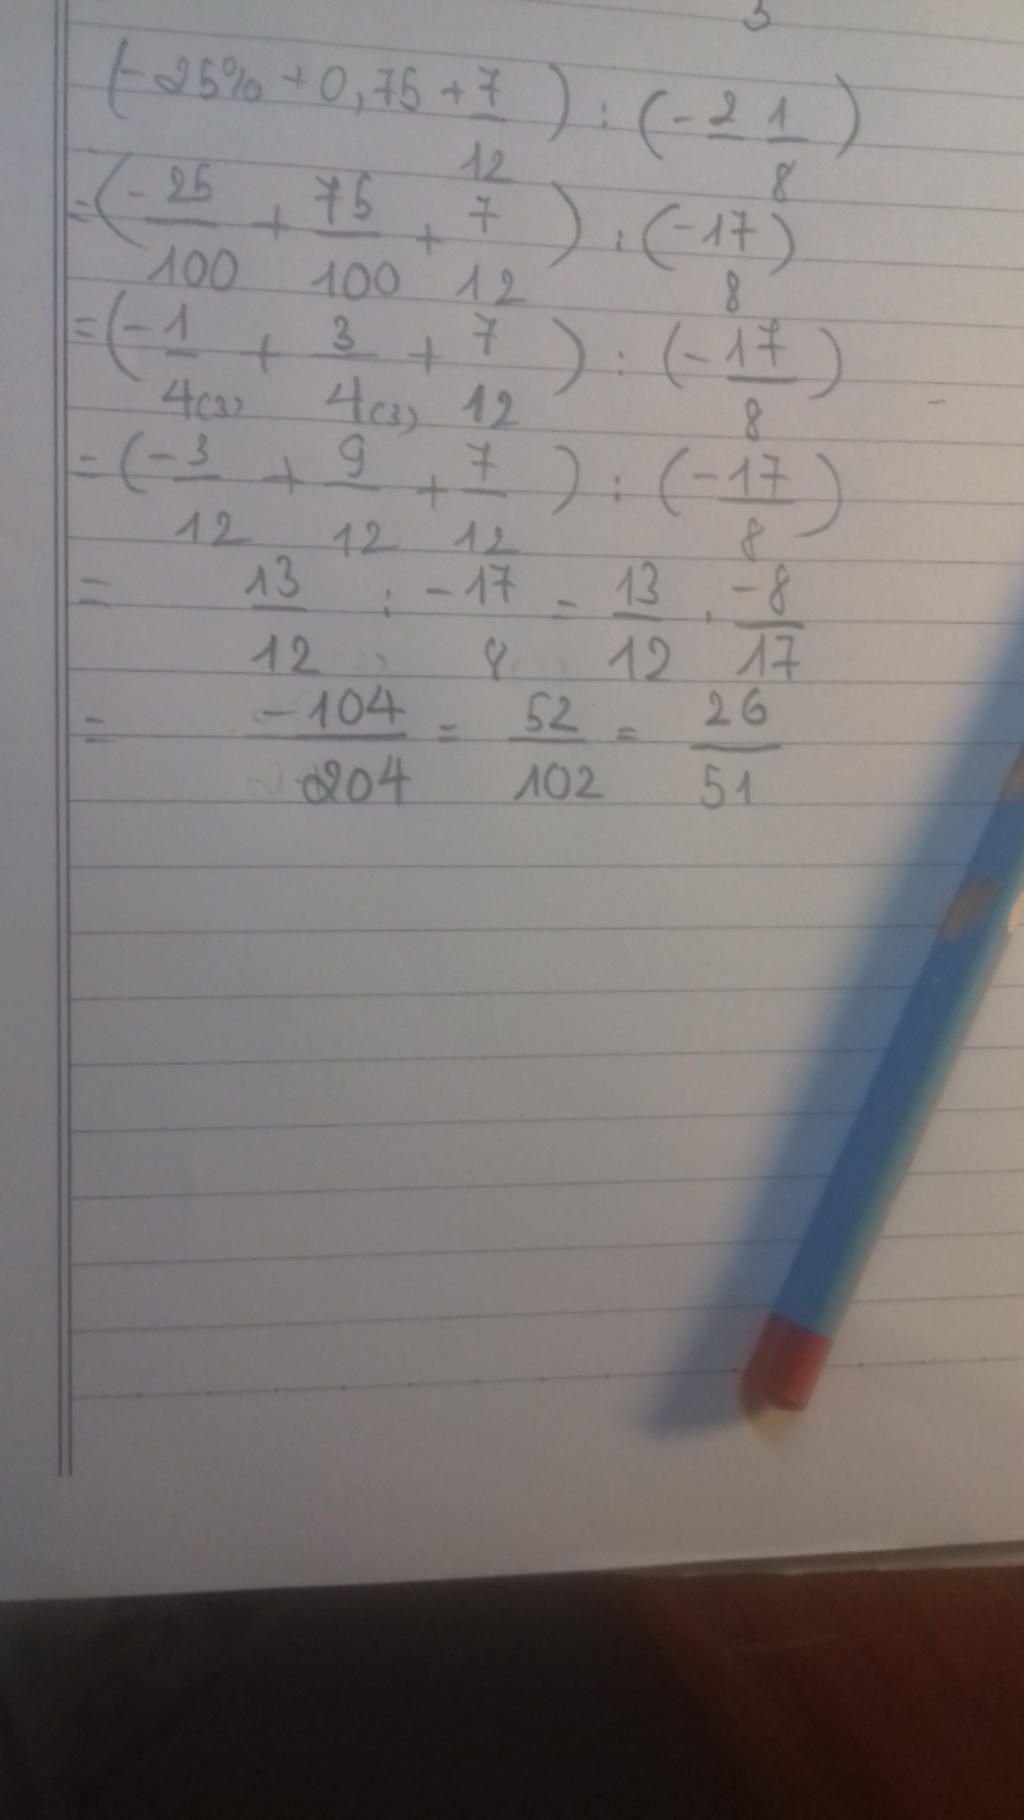 3
(-25% + 0,75 + 7/12) : (-2 1/8)
= (-25/100 + 75/100 + 7/12) : (-17/8)
= (-1/4(3) + 3/4(3) + 7/12) : (-17/8)
= (-3/12 + 9/12 + 7/12) : (-17/8)
= 13/12 : -17/8 = 13/12 . -8/17
= -104/204 = 52/102 = 26/51